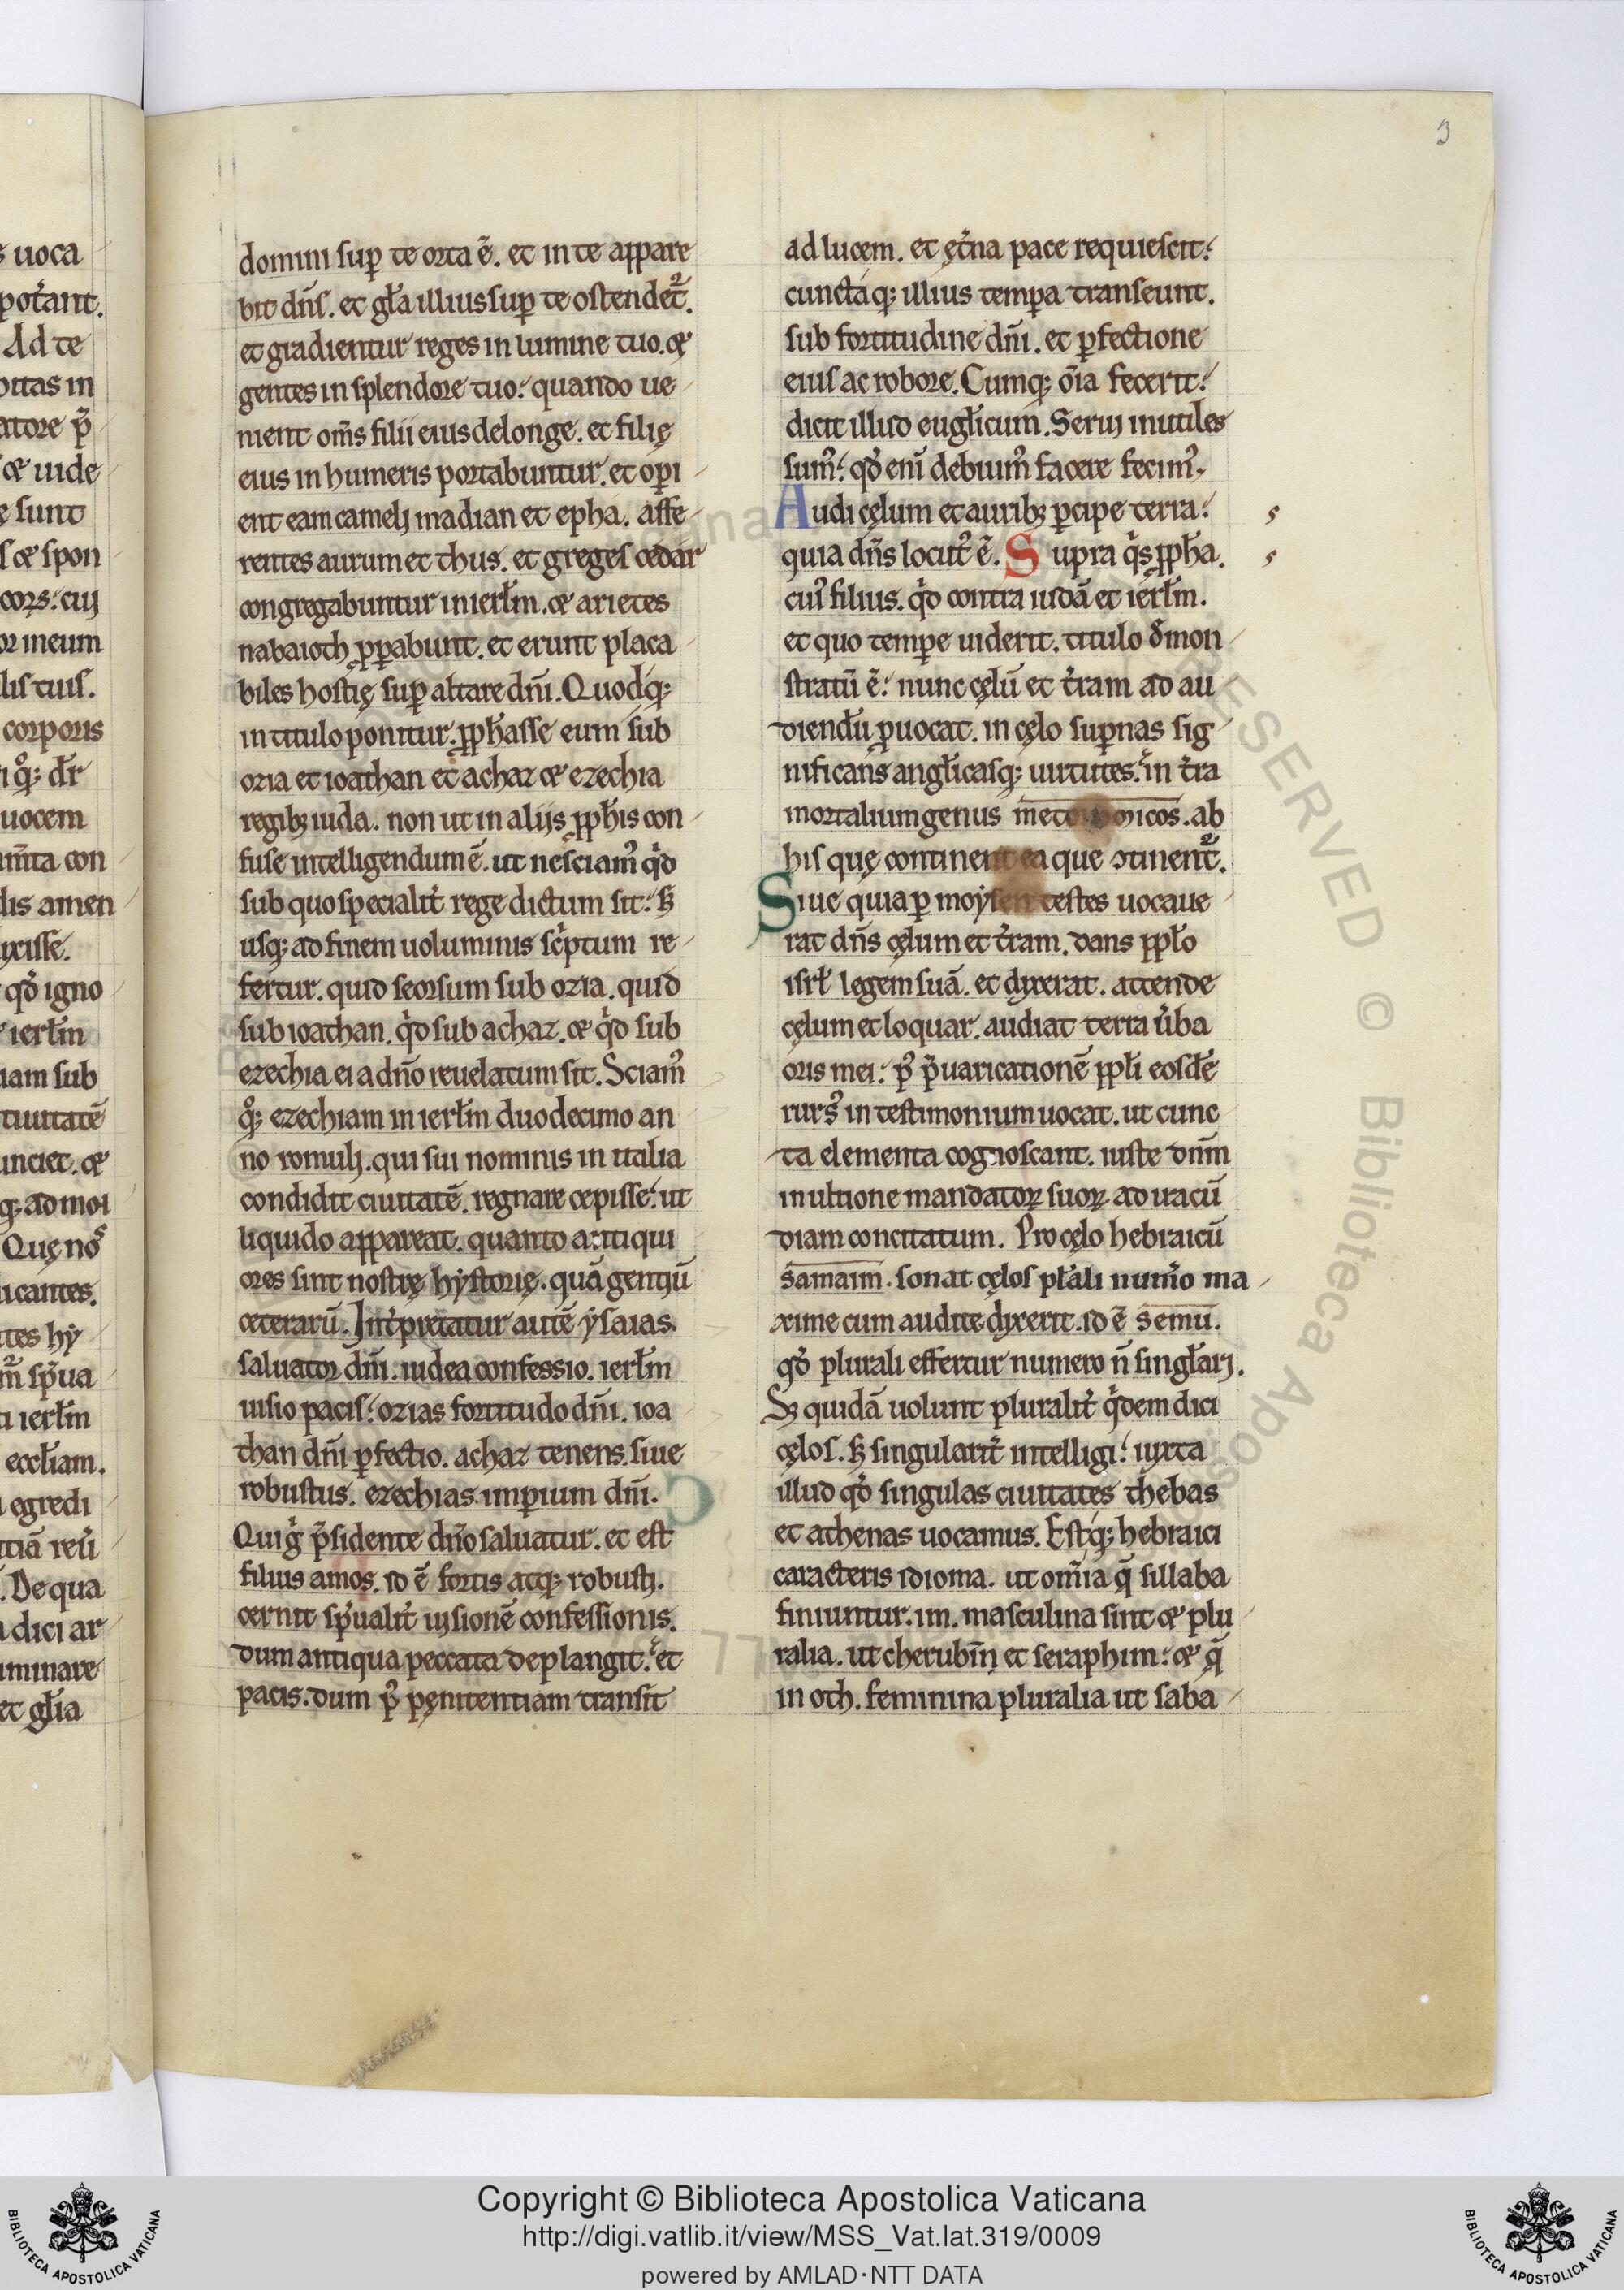 3
domini sup te orta ē. et in te appare
bit dn̄s. et gl̄a illius sup te ostendet᷑.
et gradientur reges in lumine tuo. et
gentes in splendore tuo. quando ue
nient om̄s filii eius delonge. et filię
eius in humeris portabuntur. et opi
ent eam camelj madian et epha. affe
rentes aurum et thus. et greges cedar
congregabuntur in ierl̄m. et arietes
nabaioth ꝓpabunt. et erunt placa
biles hostię sup altare dn̄i. Quodq;
in titulo ponitur. ꝓph̄asse eum sub
ozia et ioathan et achaz et ezechia
regib; iuda. non ut in alijs ꝓph̄is con
fuse intelligendum ē. ut nesciam᷒ qͥd
sub quo specialit̄ rege dictum sit: sꝫ
usq; ad finem uoluminis sc̄ptum re
fertur. quid seorsum sub ozia. quid
sub ioathan. qͥd sub achaz. et qͥd sub
ezechia ei a dn̄o reuelatum sit. Sciam᷒
qͦ; ezechiam in ierl̄m duodecimo an
no romulj. qui sui nominis in italia
condidit ciuitatē. regnare cepisse. ut
liquido appareat. quanto antiqui
ores sint nostrę hẏstorię. quā gentiū
ceterarū. Int̄pretatur autē ẏsaias.
saluator dn̄i. iudea confessio. ierl̄m
uisio pacis: ozias fortitudo dn̄i. ioa
than dn̄i ꝑfectio. achaz tenens. siue
robustus. ezechias. imperium dn̄i.
Qui gͥ p̄sidente dn̄o saluatur. et est
filius amos. id ē fortis atq; robustj.
cernit sp̄ualit̄ uisionē confessionis.
dum antiqua peccata deplangit. et
pacis. dum p᷒ pęnitentiam transit
ad lucem. et ęt̄na pace requiescit.
cunctaq; illius tempa transeunt.
sub fortitudine dn̄i. et ꝑfectione
eius ac robore. Cumq; om̄ia fecerit.
dicit illud eugl̄icum. Seruj inutiles
sum᷒. qd̄ eni debuim᷒ facere fecim᷒.
Audi cęlum et aurib; ꝑcipe terra.
quia dn̄s locut᷒ ē. Supra qͥs ꝓph̄a.
cui᷒ filius. qͥd contra iudā et ierl̄m.
et quo tempe uiderit. titulo d̄mon
stratū ē. nunc cęlū et t̄ram ad au
diendū ꝓuocat. in cęlo supnas sig
nificans angl̄icasq; uirtutes. in t̄ra
mortalium genus. ab
his quę continent ea que ↄtinent᷑.
Siue quia ꝑ moẏsen testes uocaue
rat dn̄s cęlum et t̄ram. dans ppl̄o
isrl̄ legem suā. et dyxerat. attende
cęlum et loquar. audiat terra ūba
oris mei. p᷒ p̄uaricationē ppl̄i eosd̄e
rurs᷒ in testimonium uocat. ut cunc
ta elementa cognoscant. iuste dn̄m
in ultione mandatoꝝ suoꝝ ad iracū
diam concitatum. Pro cęlo hebraicū
samaim. sonat cęlos pl̄ali num̄o ma
xime cum audite dyxerit. id ē semu.
qd̄ plurali effertur numero n̄ singl̄arj.
Sꝫ quidā uolunt pluralit̄ qͥdem dici
cęlos. sꝫ singularit̄ intelligi. iuxta
illud qd̄ singulas ciuitates thebas
et athenas uocamus. Estq; hebraici
caracteris idioma. ut om̄ia q̄ sillaba
finiuntur. im. masculina sint et plu
ralia. ut cherubin̄ et seraphim. et q̄
in oth. feminina pluralia ut saba
Copyright © Biblioteca Apostolica Vaticana
http://digi.vatlib.it/view/MSS_Vat.lat.319/0009
powered by AMLAD·NTT DATA